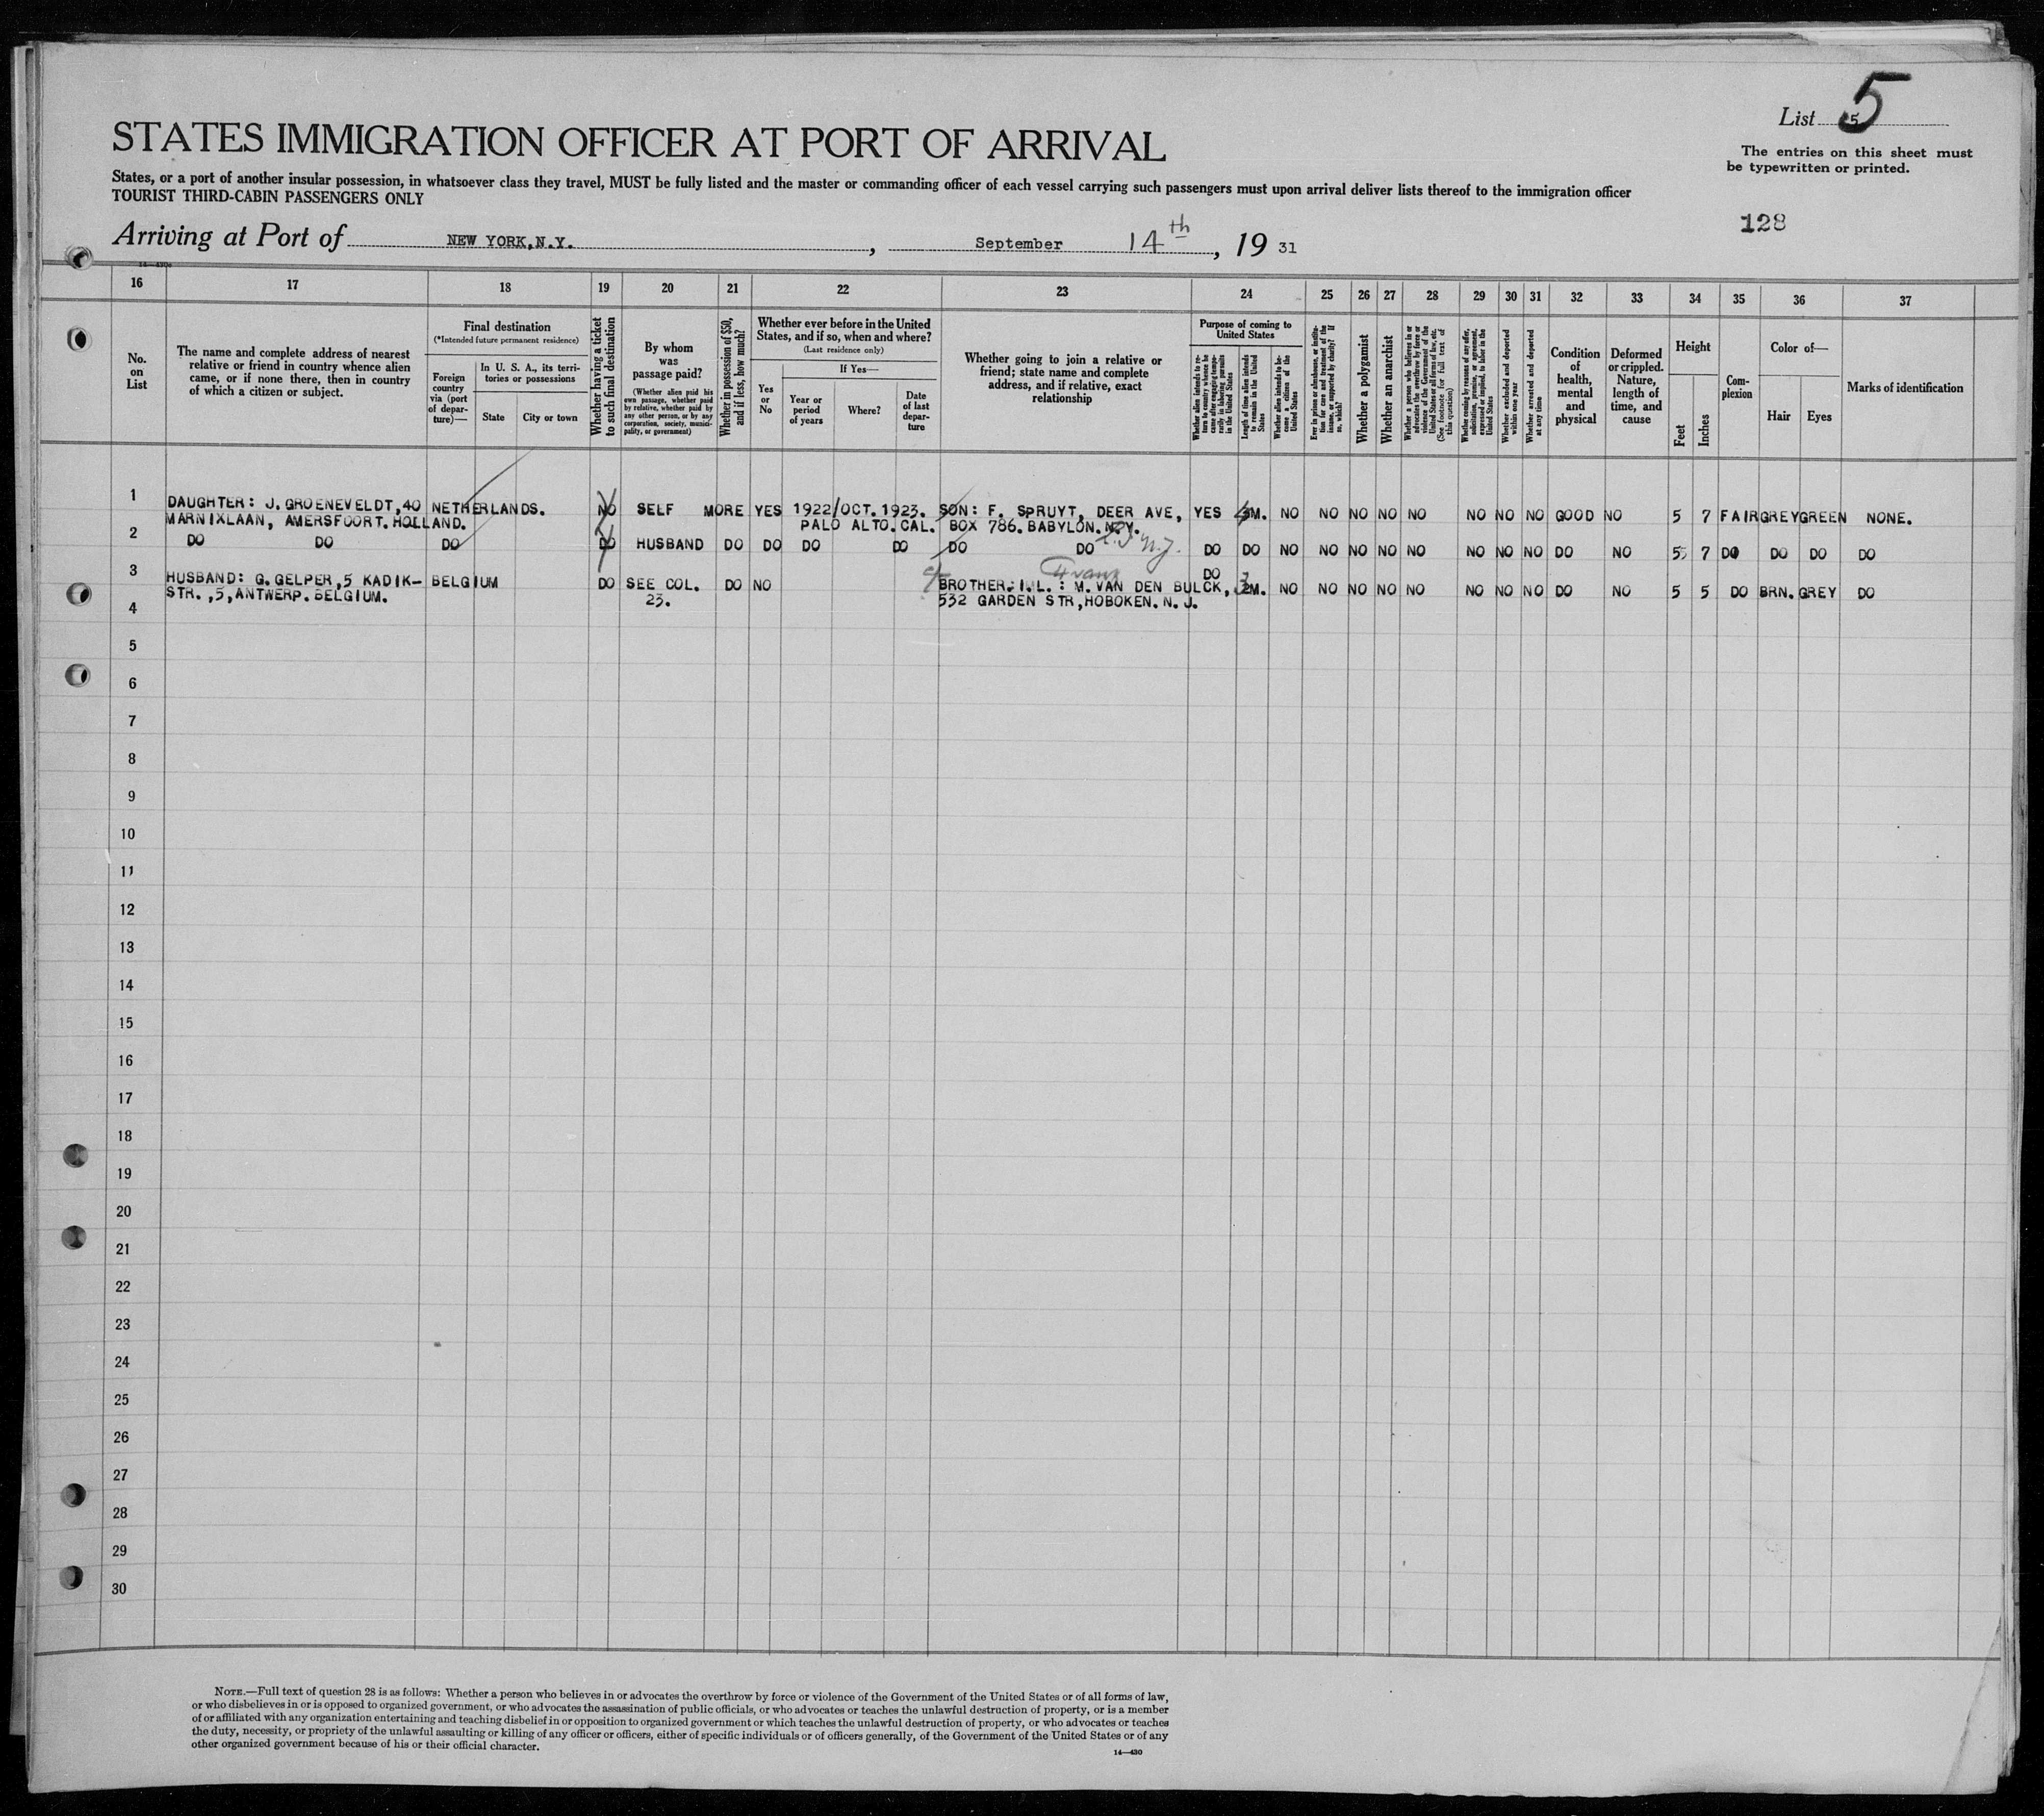 List 5
5
STATES IMMIGRATION OFFICER AT PORT OF ARRIVAL
The entries on this sheet must
be typewritten or printed.
States, or a port of another insular possession, in whatsoever class they travel, MUST be fully listed and the master or commanding officer of each vessel carrying such passengers must upon arrival deliver lists thereof to the immigration officer
TOURIST THIRD-CABIN PASSENGERS ONLY
128
Arriving at Port of NEW YORK, N.Y. , September 14th , 19 31
16 17 18 19 20 21 22 23 24 25 26 27 28 29 30 31 32 33 34 35 36 37
No.
on
List
The name and complete address of nearest
relative or friend in country whence alien
came, or if none there, then in country
of which a citizen or subject.
Final destination
(*Intended future permanent residence)
Foreign
country
via (port
of depar-
ture)—
In U. S. A., its terri-
tories or possessions
State
City or town
Whether having a ticket
to such final destination
By whom
was
passage paid?
(Whether alien paid his
own passage, whether paid
by relative, whether paid by
any other person, or by any
corporation, society, munici-
pality, or government)
Whether in possession of $50,
and if less, how much?
Whether ever before in the United
States, and if so, when and where?
(Last residence only)
Yes
or
No
If Yes—
Year or
period
of years
Where?
Date
of last
depar-
ture
Whether going to join a relative or
friend; state name and complete
address, and if relative, exact
relationship
Purpose of coming to
United States
Whether alien intends to re-
turn to country whence he
came after engaging tempo-
rarily in laboring pursuits
in the United States
Length of time alien intends
to remain in the United
States
Whether alien intends to be-
come a citizen of the
United States
Ever in prison or almshouse, or institu-
tion for care and treatment of the
insane, or supported by charity? If
so, which?
Whether a polygamist
Whether an anarchist
Whether a person who believes in or
advocates the overthrow by force or
violence of the Government of the
United States or all forms of law, etc.
(See footnote for full text of
this question)
Whether coming by reasons of any offer,
solicitation, promise, or agreement,
expressed or implied, to labor in the
United States
Whether excluded and deported
within one year
Whether arrested and deported
at any time
Condition
of
health,
mental
and
physical
Deformed
or crippled.
Nature,
length of
time, and
cause
Height
Feet
Inches
Com-
plexion
Color of—
Hair
Eyes
Marks of identification
1 DAUGHTER: J. GROENEVELDT, 40 NETHERLANDS. NO SELF MORE YES 1922/OCT. 1923. SON: F. SPRUYT, DEER AVE, YES M. NO NO NO NO NO NO NO NO GOOD NO 5 7 FAIR GREY GREEN NONE.
MARNIXLAAN, AMERSFOORT. HOLLAND. PALO ALTO. CAL. BOX 786. BABYLON. N.Y.
2 DO DO DO DO HUSBAND DO DO DO DO DO DO DO DO NO NO NO NO NO NO NO NO DO NO 5 7 DO DO DO DO
DO
3 HUSBAND: G. GELPER, 5 KADIK- BELGIUM DO SEE COL. DO NO BROTHER. I. L.: M. VAN DEN BULCK, M. NO NO NO NO NO NO NO NO DO NO 5 5 DO BRN. GREY DO
STR., 5, ANTWERP. BELGIUM. 23. 532 GARDEN STR, HOBOKEN. N. J.
4
5
6
7
8
9
10
11
12
13
14
15
16
17
18
19
20
21
22
23
24
25
26
27
28
29
30
NOTE.—Full text of question 28 is as follows: Whether a person who believes in or advocates the overthrow by force or violence of the Government of the United States or of all forms of law,
or who disbelieves in or is opposed to organized government, or who advocates the assassination of public officials, or who advocates or teaches the unlawful destruction of property, or is a member
of or affiliated with any organization entertaining and teaching disbelief in or opposition to organized government or which teaches the unlawful destruction of property, or who advocates or teaches
the duty, necessity, or propriety of the unlawful assaulting or killing of any officer or officers, either of specific individuals or of officers generally, of the Government of the United States or of any
other organized government because of his or their official character.
14—430